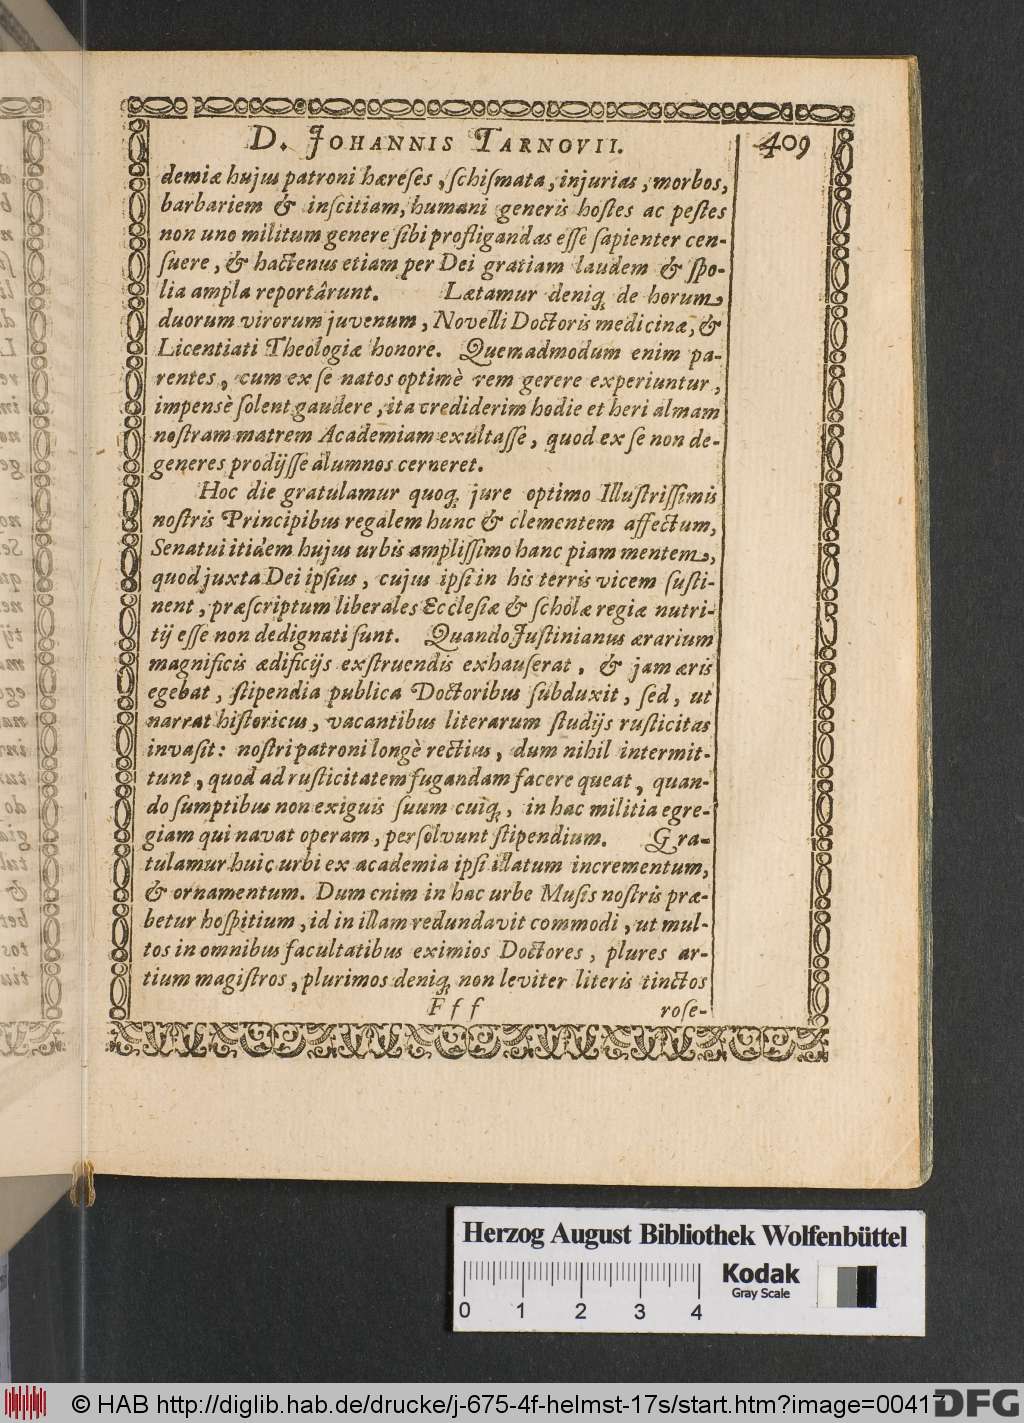 D. JOHANNIS TARNOVII. 409
demiæ hujus patroni hæreſes, ſchiſmata, injurias, morbos,
barbariem & inſcitiam, humani generis hoſtes ac peſtes
non uno militum genere ſibi profligandas eſſe ſapienter cen-
ſuere, & hactenus etiam per Dei gratiam laudem & ſpo-
lia ampla reportârunt. Lætamur deniq; de horum
duorum virorum juvenum, Novelli Doctoris medicinæ, &
Licentiati Theologiæ honore. Quemadmodum enim pa-
rentes, cum ex ſe natos optimè rem gerere experiuntur,
impensè ſolent gaudere, ita crediderim hodie et heri almam
noſtram matrem Academiam exultaſſe, quod ex ſe non de-
generes prodijſſe alumnos cerneret.
Hoc die gratulamur quoq; jure optimo Illuſtriſſimis
noſtris Principibus regalem hunc & clementem affectum,
Senatui itidem hujus urbis ampliſſimo hanc piam mentem,
quod juxta Dei ipſius, cujus ipſi in his terris vicem ſuſti-
nent, præſcriptum liberales Eccleſiæ & ſcholæ regiæ nutri-
tij eſſe non dedignati ſunt. Quando Juſtinianus ærarium
magnificis ædificijs exſtruendis exhauſerat, & jam æris
egebat, ſtipendia publica Doctoribus ſubduxit, ſed, ut
narrat hiſtoricus, vacantibus literarum ſtudijs ruſticitas
invaſit: noſtri patroni longè rectius, dum nihil intermit-
tunt, quod ad ruſticitatem fugandam facere queat, quan-
do ſumptibus non exiguis ſuum cuiq;, in hac militia egre-
giam qui navat operam, perſolvunt ſtipendium. Gra-
tulamur huic urbi ex academia ipſi illatum incrementum,
& ornamentum. Dum enim in hac urbe Muſis noſtris præ-
betur hoſpitium, id in illam redundavit commodi, ut mul-
tos in omnibus facultatibus eximios Doctores, plures ar-
tium magiſtros, plurimos deniq; non leviter literis tinctos
F f f roſe-
Herzog August Bibliothek Wolfenbüttel
Kodak
Gray Scale
0 1 2 3 4
© HAB http://diglib.hab.de/drucke/j-675-4f-helmst-17s/start.htm?image=00417
DFG